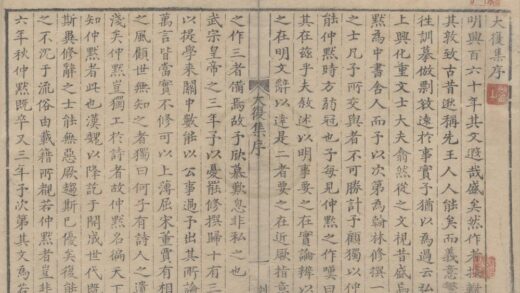 大復集序
明興百六十年其文遐哉盛矣然作者接
其敦致古昔逖稱先王人人能矣而義意繁
往訓摹倣剽敚遠於事實予猶以為過云弘
上興化重文士大夫翕然從之文視昔盛焉
黙為中書舍人而予以次第為翰林修撰一
之士凡予所交與者不可勝計予顧獨以仲
然仲黙時方弱冠也予每見仲黙之作嘆曰
其在茲乎夫敘述以明事要之在實論辯以
之在明文辭以達是二者要之在近厥指意
大復集序 一
之作三者備焉故予欣慕歎息非私之也
武宗皇帝之三年予以憂罷修撰歸十有三
以提學來關中數能以公事過予出其所論
萬言皆當實不修可以上薄屈宋董賈有相
之風顧世無知之者獨曰何子有詩人之遺
淺矣仲黙豈獨工於詩者故仲黙名偏天下
知仲黙者此也漢魏以降說于開成世代既
斯異修辭之士能無惡厭趨斯已優矣後能
之不沉于流俗由載籍所觀若仲黙者豈非
六年秋仲黙既卒又三年予次第其文為若